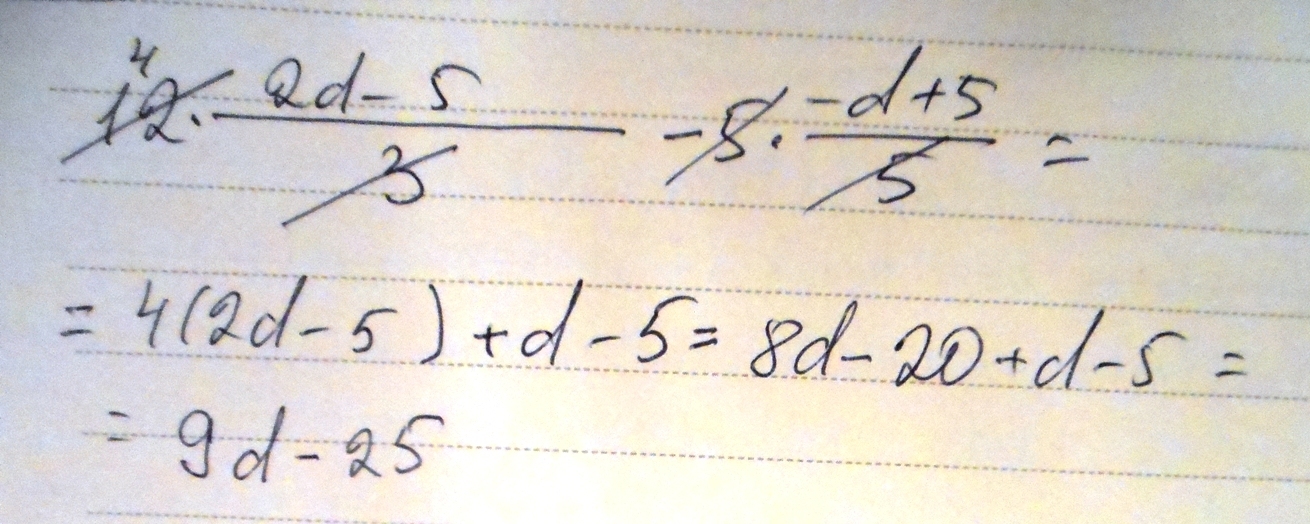 12⁴ · (2d - 5)/3 - 5 · (-d + 5)/5 =
= 4(2d - 5) + d - 5 = 8d - 20 + d - 5 =
= 9d - 25